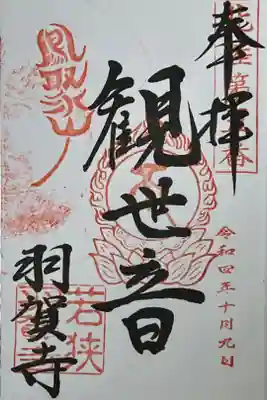 奉拝
観世音
令和四年十月九日
羽賀寺
鳳聚山
若狭